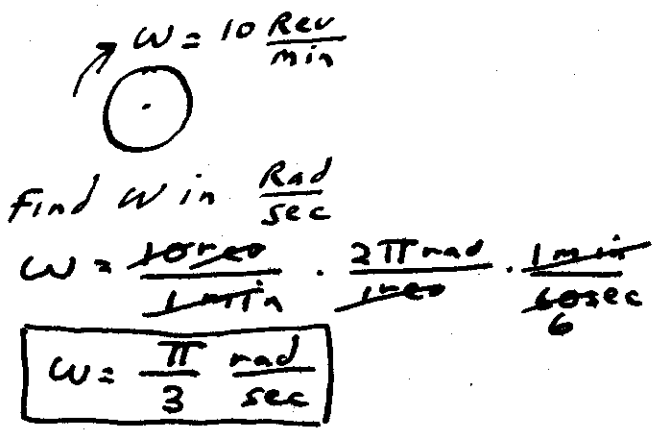 ω = 10 Rev/min
Find ω in Rad/sec
ω = 10 rev/1 min · 2π rad/1 rev · 1 min/60 sec
6
ω = π/3 rad/sec